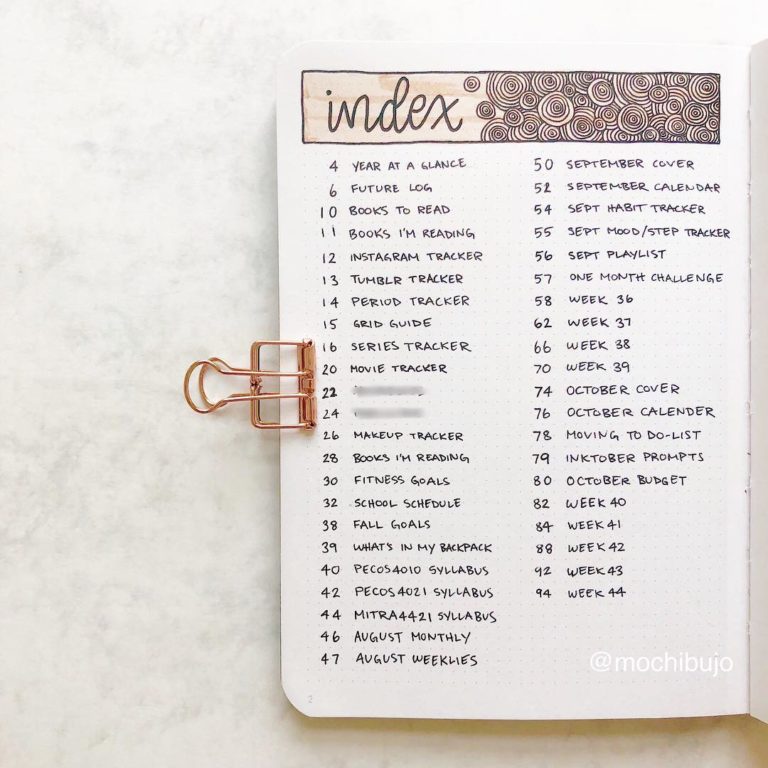 index
4 YEAR AT A GLANCE
6 FUTURE LOG
10 BOOKS TO READ
11 BOOKS I'M READING
12 INSTAGRAM TRACKER
13 TUMBLR TRACKER
14 PERIOD TRACKER
15 GRID GUIDE
16 SERIES TRACKER
20 MOVIE TRACKER
22
24
26 MAKEUP TRACKER
28 BOOKS I'M READING
30 FITNESS GOALS
32 SCHOOL SCHEDULE
38 FALL GOALS
39 WHAT'S IN MY BACKPACK
40 PECOS4010 SYLLABUS
42 PECOS4021 SYLLABUS
44 MITRA4421 SYLLABUS
46 AUGUST MONTHLY
47 AUGUST WEEKLIES
50 SEPTEMBER COVER
52 SEPTEMBER CALENDAR
54 SEPT HABIT TRACKER
55 SEPT MOOD/STEP TRACKER
56 SEPT PLAYLIST
57 ONE MONTH CHALLENGE
58 WEEK 36
62 WEEK 37
66 WEEK 38
70 WEEK 39
74 OCTOBER COVER
76 OCTOBER CALENDER
78 MOVING TO DO-LIST
79 INKTOBER PROMPTS
80 OCTOBER BUDGET
82 WEEK 40
84 WEEK 41
88 WEEK 42
92 WEEK 43
94 WEEK 44
@mochibujo
2